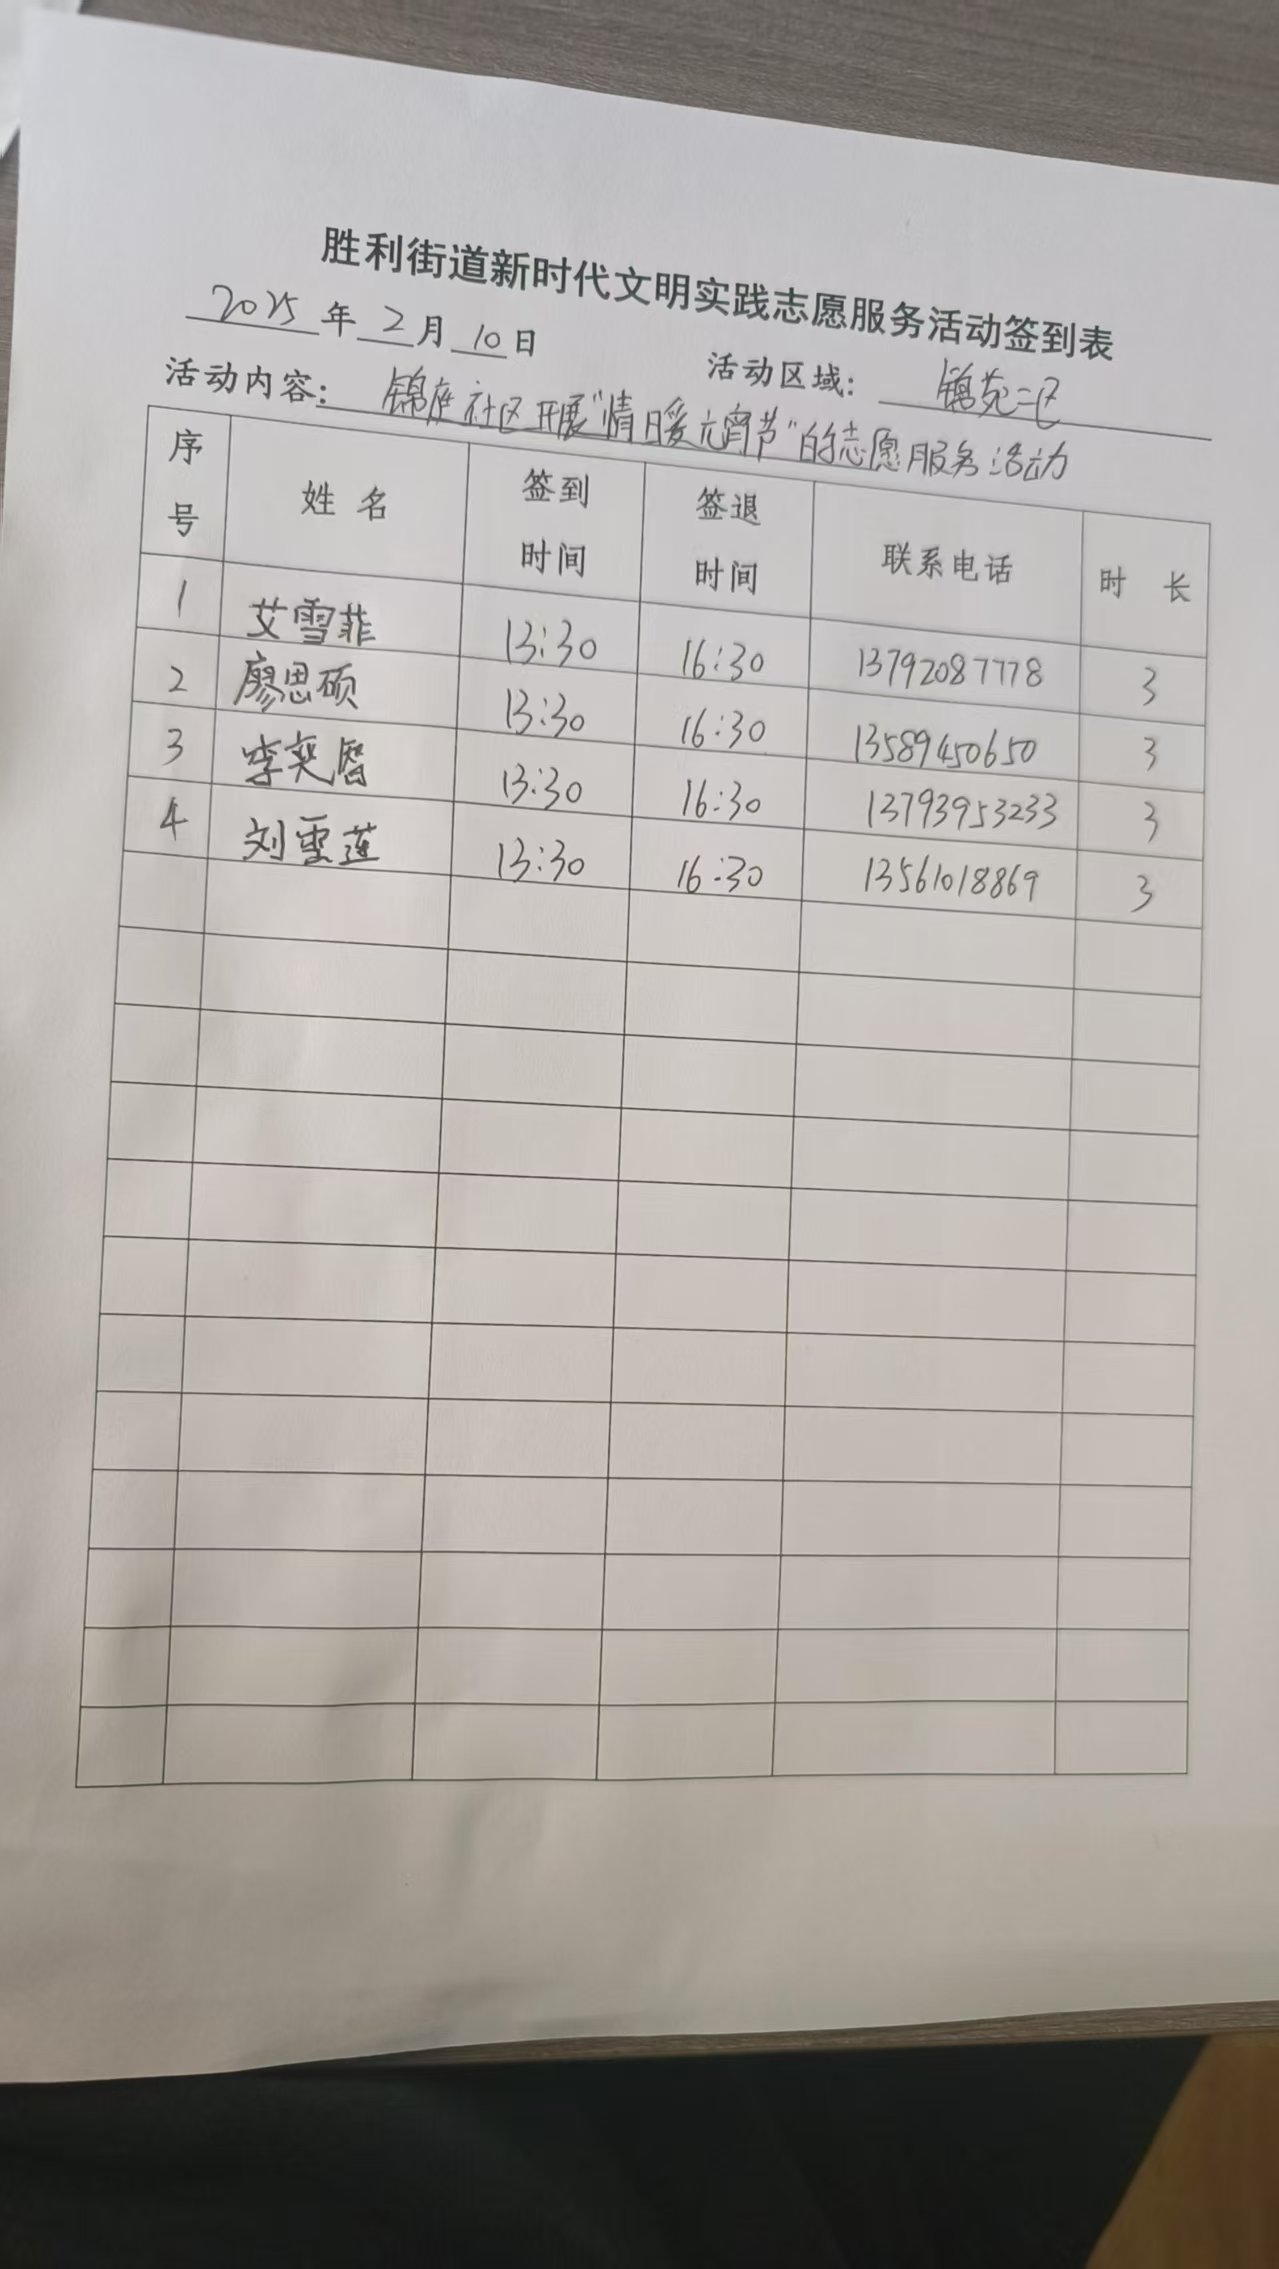 胜利街道新时代文明实践志愿服务活动签到表
2025年2月10日
活动区域：锦苑二区
活动内容：锦庭社区开展"情暖元宵节"的志愿服务活动
序号 姓名 签到时间 签退时间 联系电话 时长
1 艾雪菲 13:30 16:30 13792087778 3
2 廖思硕 13:30 16:30 13589450650 3
3 李奕 13:30 16:30 13793953233 3
4 刘雪莲 13:30 16:30 13561018869 3